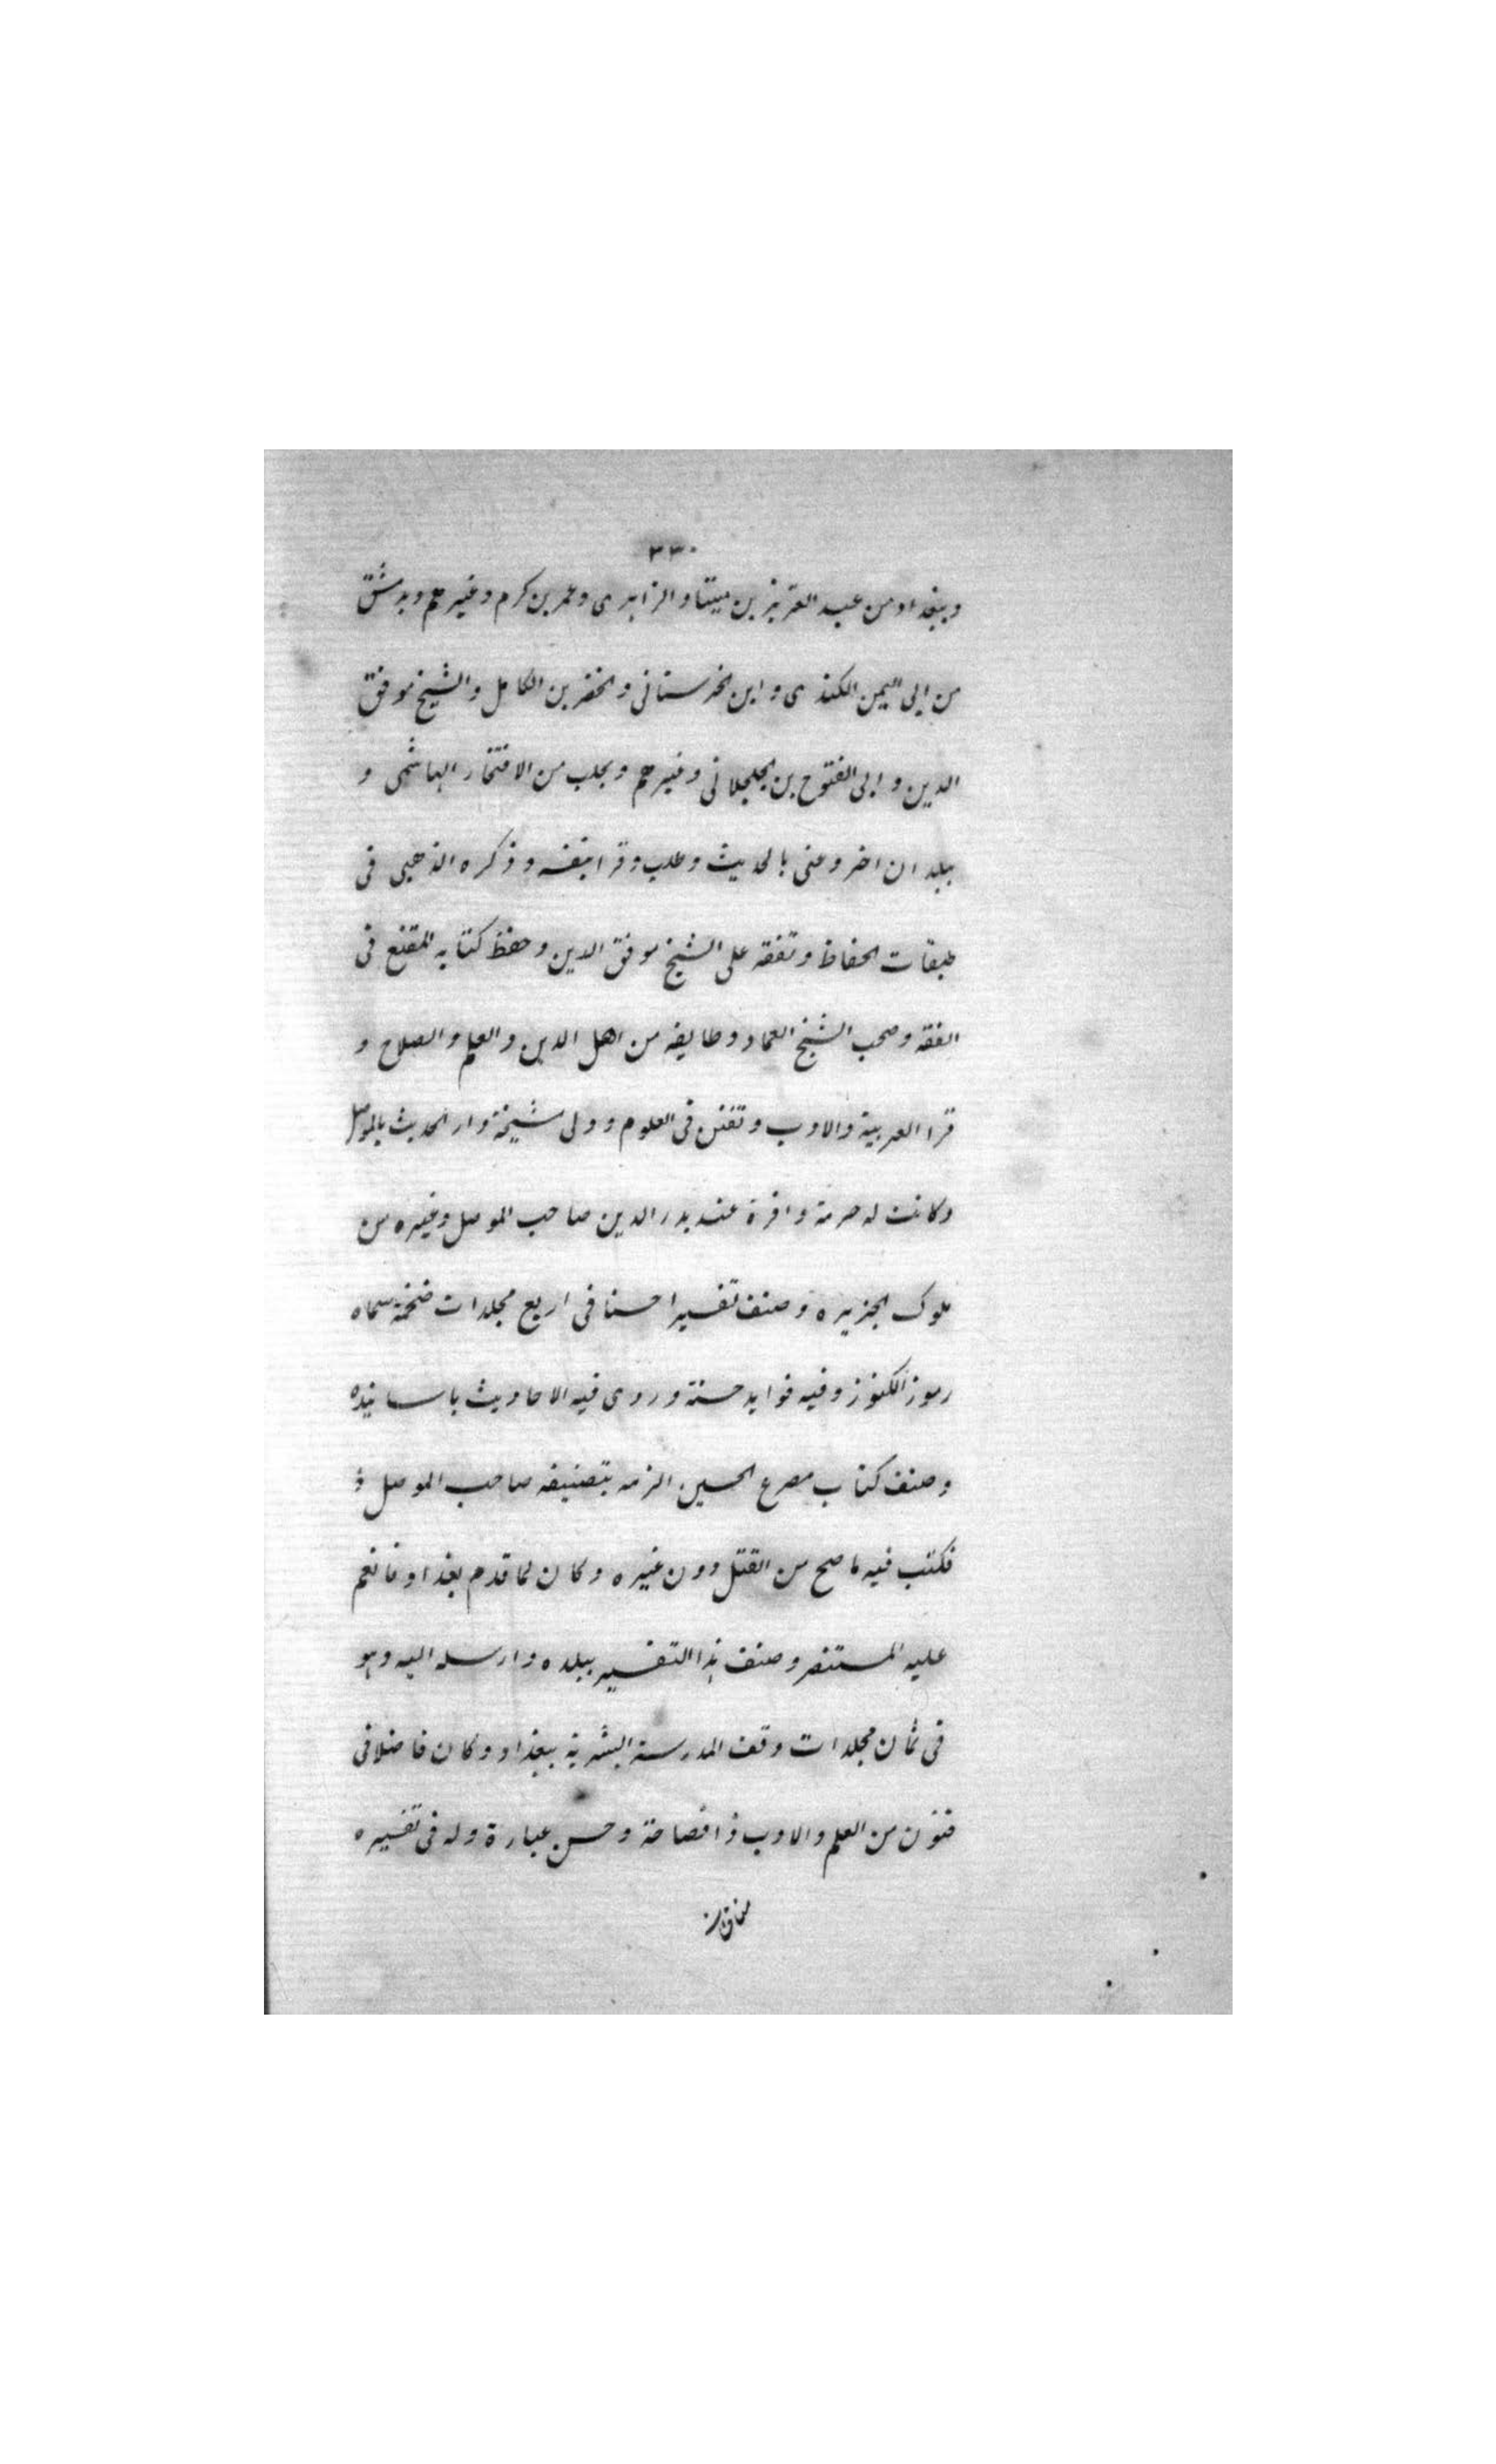 ٣٣٠
وببغداد من عبد العزيز بن مينا والزاهدى وعمر بن كرم وغيرهم وبدمشق
من ابى اليمن الكندى وابن الخرستانى والخضر بن الكامل والشيخ موفق
الدين وابى الفتوح بن الجلجلانى وغيرهم وبحلب من الافتخار الهاشمى و
ببلدان اخر وعنى بالحديث وطلب وقرا بنفسه وذكره الذهبى فى
طبقات الحفاظ وتفقه على الشيخ موفق الدين وحفظ كتابه المقنع فى
الفقه وصحب الشيخ العماد وطايفه من اهل الدين والعلم والصلاح و
قرا العربية والادب وتفنن فى العلوم وولى مشيخة دار الحديث بالموصل
وكانت له حرمة وافرة عند بدر الدين صاحب الموصل وغيره من
ملوك الجزيره وصنف تفسيرا حسنا فى اربع مجلدات ضخمة سماه
رموز الكنوز وفيه فوايد حسنة وروى فيه الاحاديث باسانيده
وصنف كتاب مصرع الحسين الزمه بتصنيفه صاحب الموصل
فكتب فيه ما صح من القتل دون غيره وكان لما قدم بغداد فانعم
عليه المستنصر وصنف هذا التفسير ببلده وارسله اليه وهو
فى ثمان مجلدات وقف المدرسة البشرية ببغداد وكان فاضلا فى
فنون من العلم والادب ذا فصاحة وحسن عبارة وله فى تفسيره